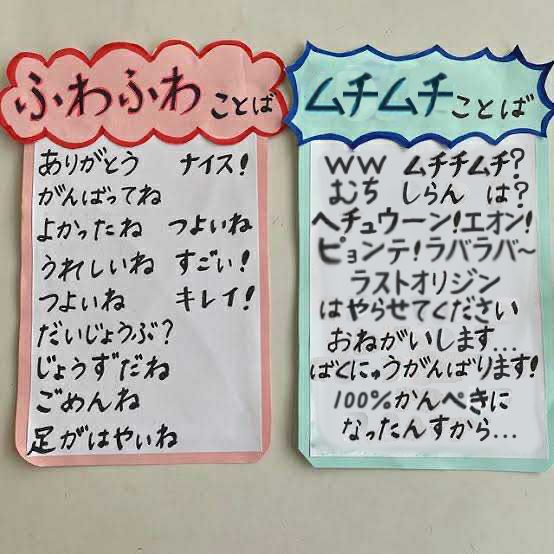 ふわふわことば
ありがとう ナイス!
がんばってね
よかったね つよいね
うれしいね すごい!
つよいね キレイ!
だいじょうぶ?
じょうずだね
ごめんね
足がはやいね
ムチムチことば
WW ムチチムチ?
むち しらん は?
ヘチュウーン!エオン!
ピョンテ!ラバラバ~
ラストオリジン
はやらせてください
おねがいします...
ばとにゅうがんばります!
100%かんぺきに
なったんすから...